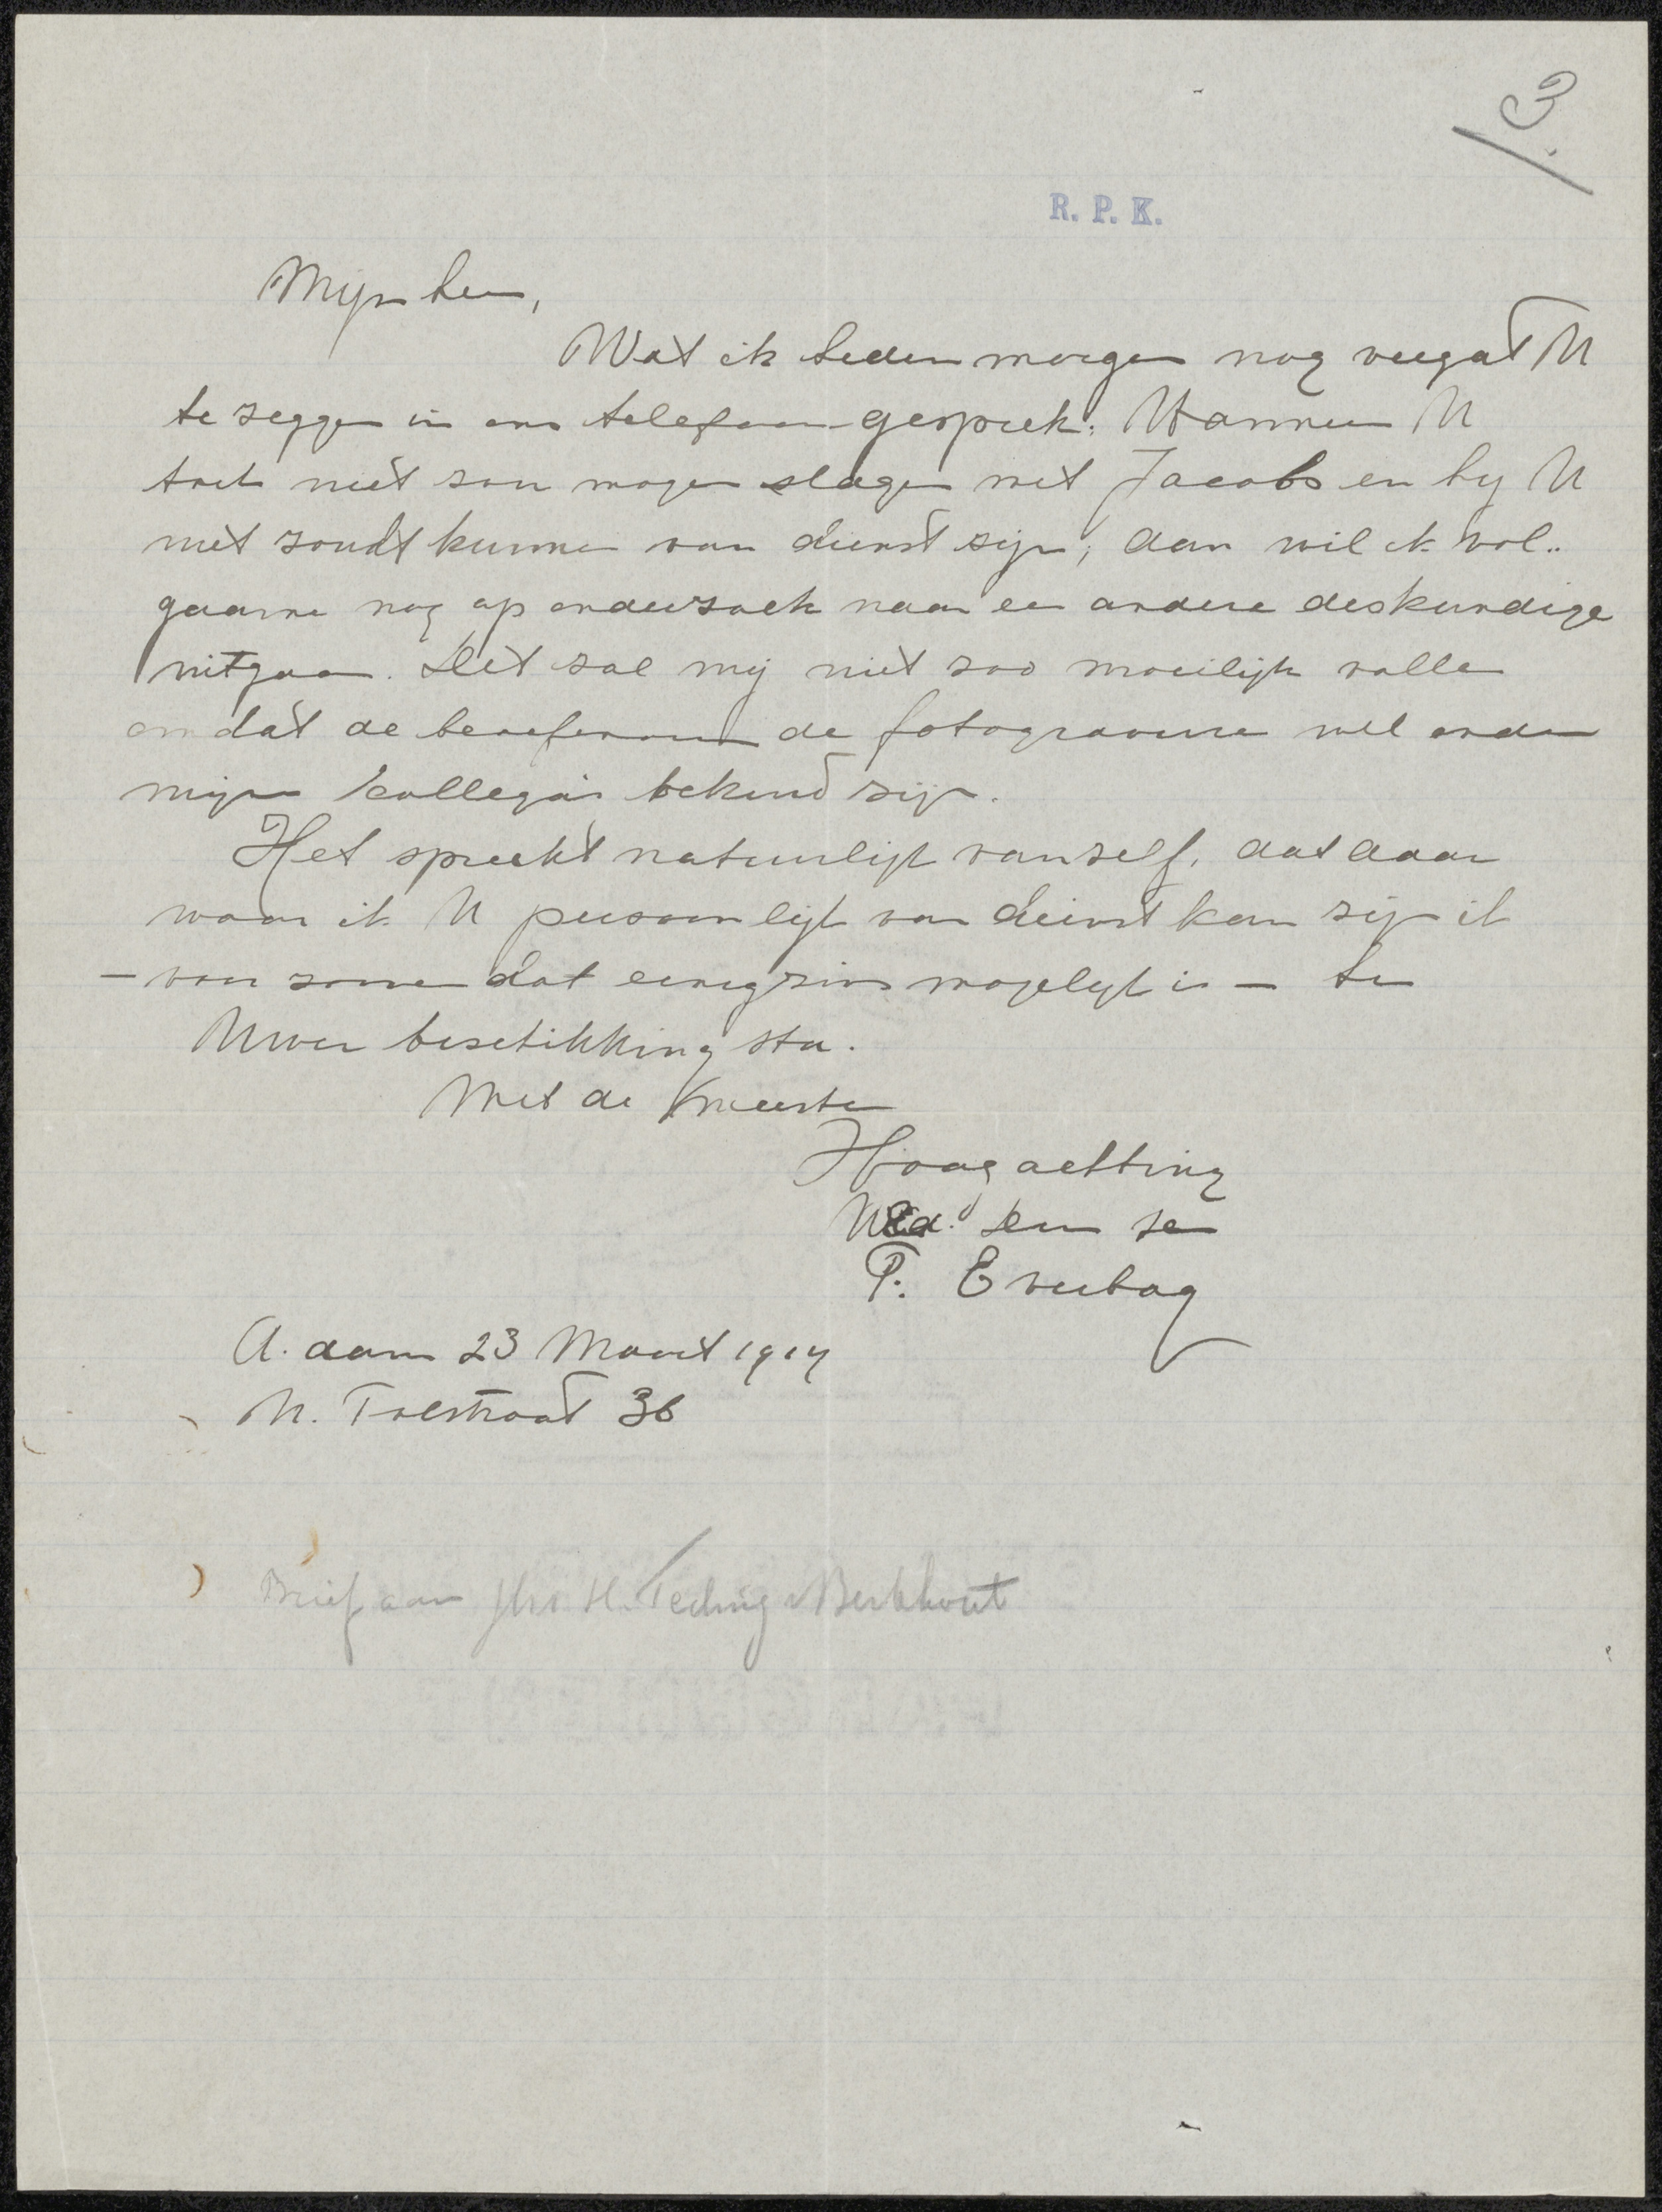 3.
R. P. K.
Mijnheer,
Wat ik heden morgen nog vergat U
te zeggen in ons telefoon-gesprek: Wanneer U
toch niet zou mogen slagen met Jacobs en hij U
niet zoudt kunnen van dienst zijn, dan wil ik vol..
gaarne nog op onderzoek naar een andere deskundige
uitgaan. Het zal mij niet zoo moeilijk vallen
omdat de beoefenaars de fotogravure wel onder
mijne kollega's bekend zijn.
Het spreekt natuurlijk vanzelf, dat daar
waar ik U persoonlijk van dienst kan zijn ik
— dat eenigzins mogelijk is — ter
Uwer beschikking sta.
Met de meeste
Hoogachting
UEd. Dw
P. Everbag
A.dam 23 Maart 1914
N. Tolstraat 36
Brief aan Jhr. H. Teding v Berkhout